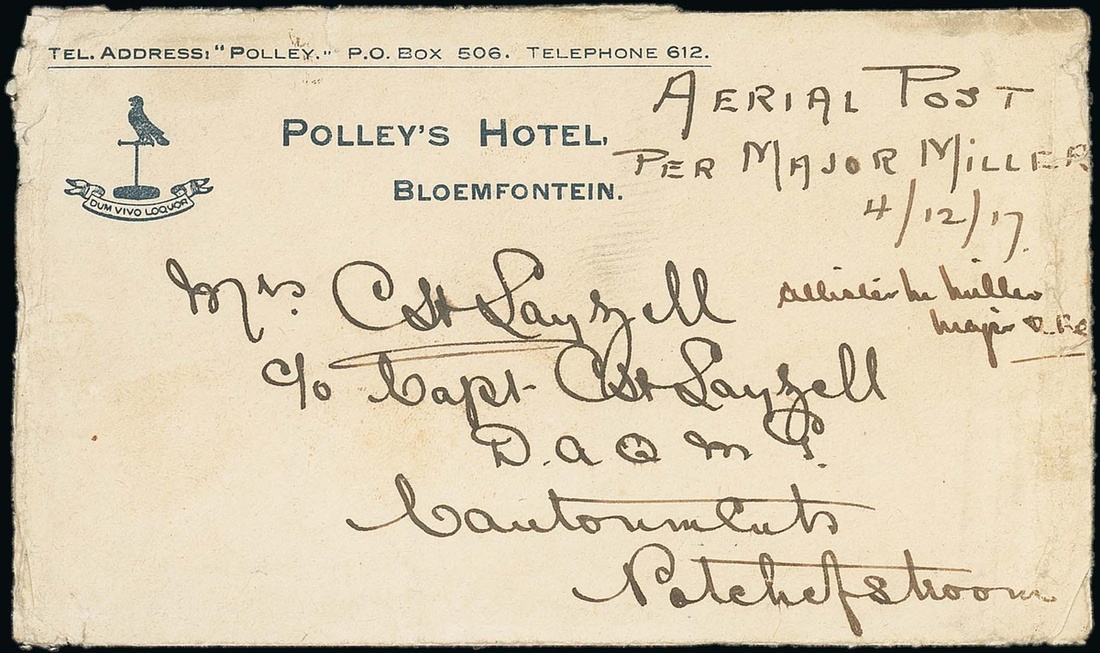 TEL. ADDRESS: "POLLEY." P.O. BOX 506. TELEPHONE 612.
POLLEY'S HOTEL,
BLOEMFONTEIN.
DUM VIVO LOQUOR
AERIAL POST
PER MAJOR MILLER
4/12/17
Allister M Miller
Major
Mrs C St Layzell
c/o Capt C St Layzell
D.A Q M G.
Cantonments
Potchefstroom